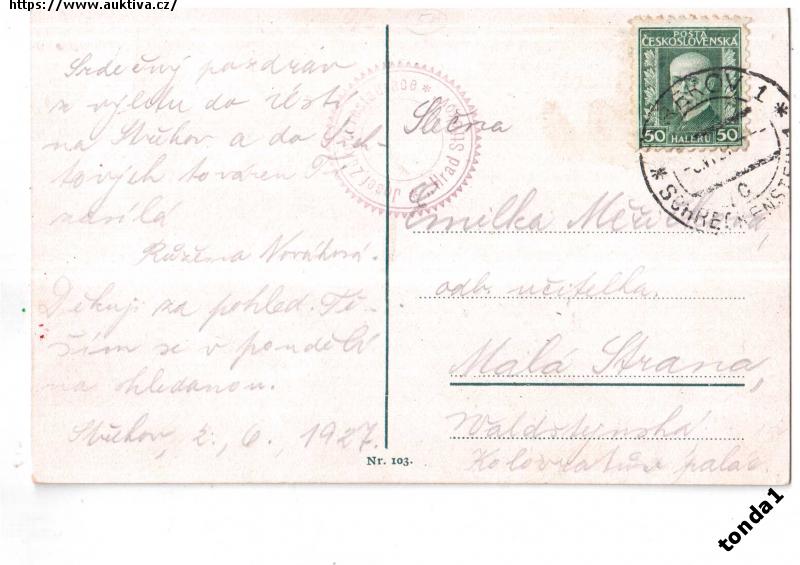 https://www.auktiva.cz/
Srdečný pozdrav
z výletu do Ústí
na Střekov a do
tových továren Tě
zasílá
Růžena Nováková.
Děkuji za pohled. Tě-
ším se v pondělí
na shledanou.
Střekov, 2., 6., 1927.
Josef
Hrad
POŠTA
ČESKOSLOVENSKÁ
50 HALÉŘŮ 50
1
SCHRECKENSTEIN
Slečna
Emilka
odb. učitelka.
Malá Strana,
Waldštýnská
Kolovratův palác.
Nr. 103.
tonda1